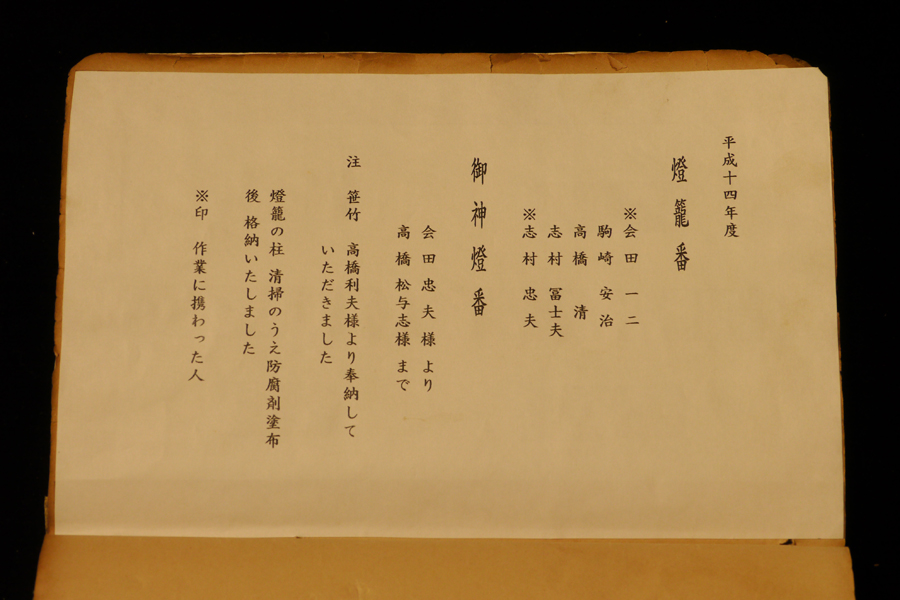 平成十四年度
燈籠番
※会田 一二
駒崎 安治
高橋 清
志村 冨士夫
※志村 忠夫
御神燈番
会田忠夫様より
高橋松与志様まで
注 笹竹 高橋利夫様より奉納して
いただきました
燈籠の柱 清掃のうえ防腐剤塗布
後 格納いたしました
※印 作業に携わった人